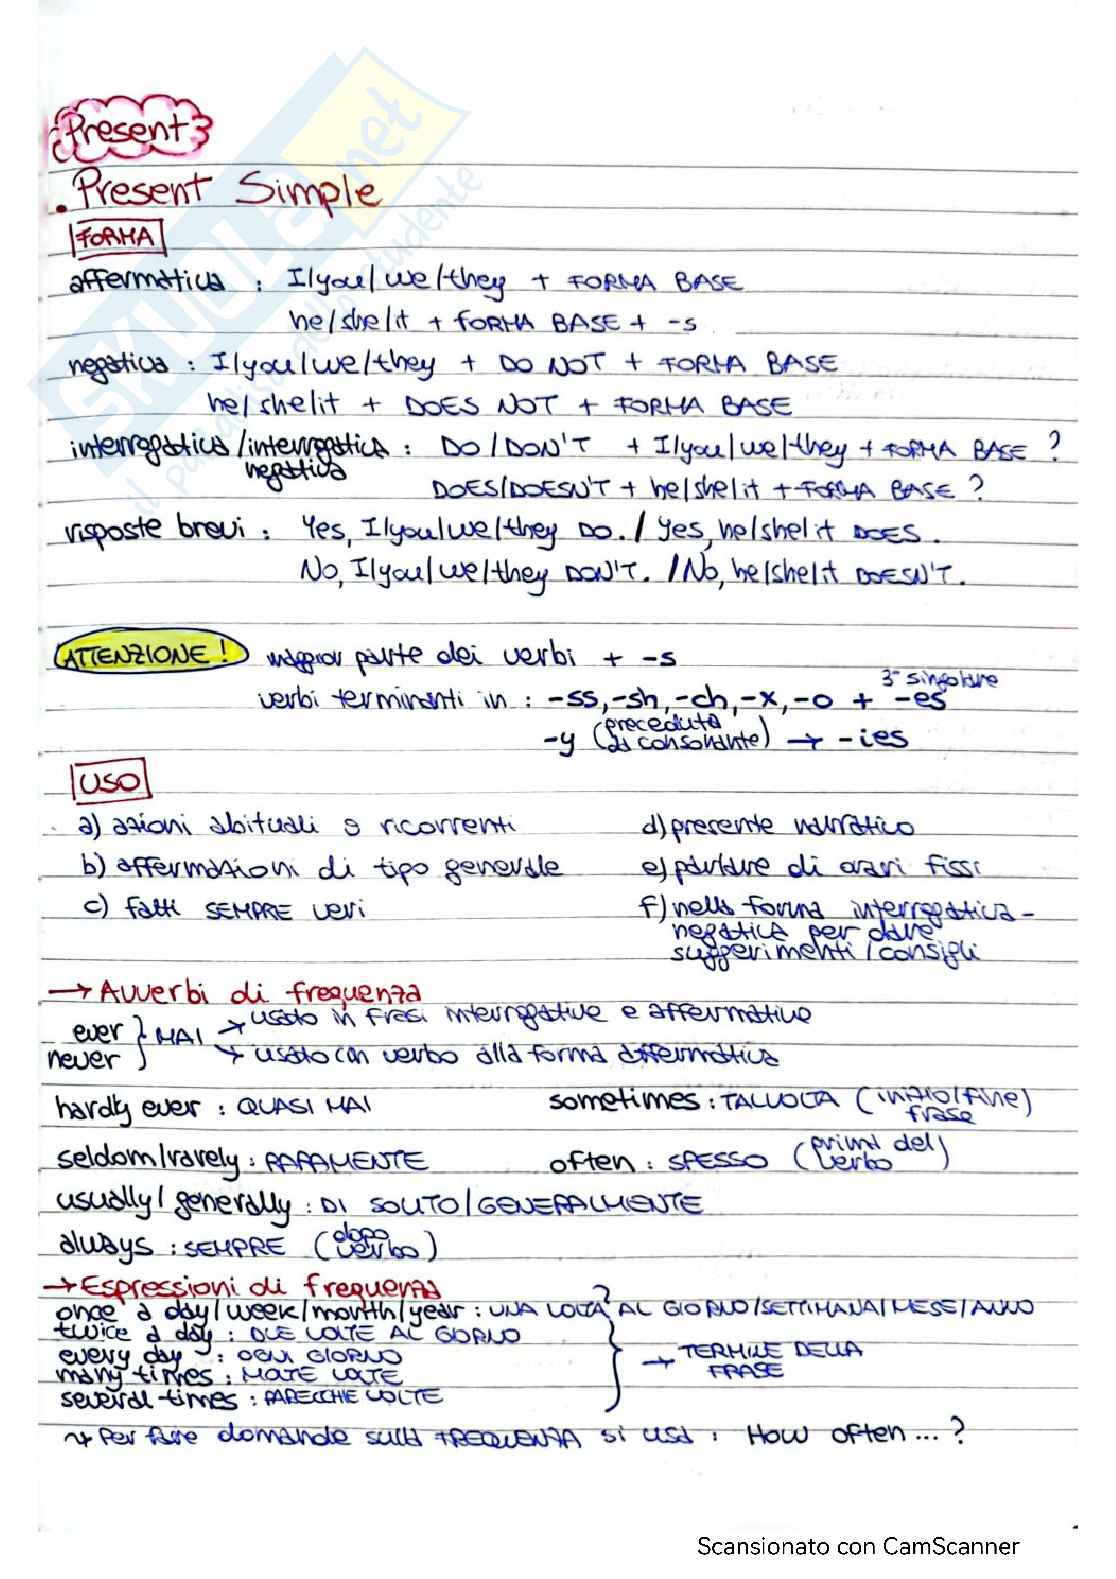 Present
. Present Simple
FORMA
affermativa : I/you/we/they + FORMA BASE
he/she/it + FORMA BASE + -s
negativa : I/you/we/they + DO NOT + FORMA BASE
he/she/it + DOES NOT + FORMA BASE
interrogativa/interrogativa negativa : DO/DON'T + I/you/we/they + FORMA BASE ?
DOES/DOESN'T + he/she/it + FORMA BASE ?
risposte brevi : Yes, I/you/we/they DO. / Yes, he/she/it DOES.
No, I/you/we/they DON'T. / No, he/she/it DOESN'T.
ATTENZIONE! maggior parte dei verbi + -s
3ª singolare
verbi terminanti in : -ss, -sh, -ch, -x, -o + -es
-y (preceduta da consonante) → -ies
USO
a) azioni abituali o ricorrenti
b) affermazioni di tipo generale
c) fatti SEMPRE veri
d) presente narrativo
e) parlare di orari fissi
f) nella forma interrogativa-
negativa per dare
suggerimenti/consigli
→ Avverbi di frequenza
ever } MAI → usato in frasi interrogative e affermative
never } → usato con verbo alla forma affermativa
hardly ever : QUASI MAI
sometimes : TALVOLTA (inizio/fine frase)
seldom/rarely : RARAMENTE
often : SPESSO (prima del verbo)
usually/generally : DI SOLITO/GENERALMENTE
always : SEMPRE (dopo verbo)
→ Espressioni di frequenza
once a day/week/month/year : UNA VOLTA AL GIORNO/SETTIMANA/MESE/ANNO
twice a day : DUE VOLTE AL GIORNO
every day : OGNI GIORNO
many times : MOLTE VOLTE
several times : PARECCHIE VOLTE
→ TERMINE DELLA
FRASE
↝ Per fare domande sulla FREQUENZA si usa : How often ... ?
SKUOLA.net
il paradiso dello studente
Scansionato con CamScanner